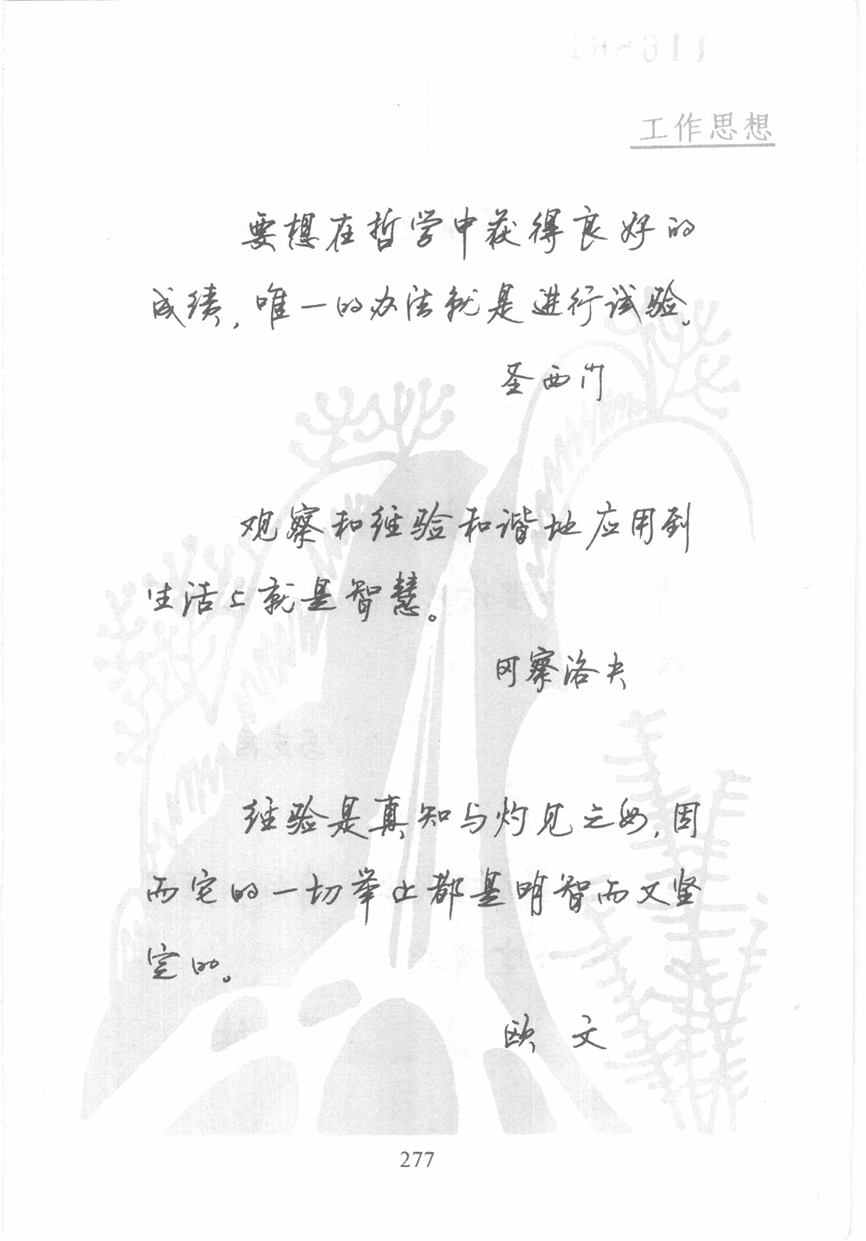 工作思想
要想在哲学中获得良好的
成绩,唯一的办法就是进行试验。
圣西门
观察和经验和谐地应用到
生活上就是智慧。
冈察洛夫
经验是真知与灼见之母,因
而它的一切举止都是明智而又坚
定的。
欧 文
277